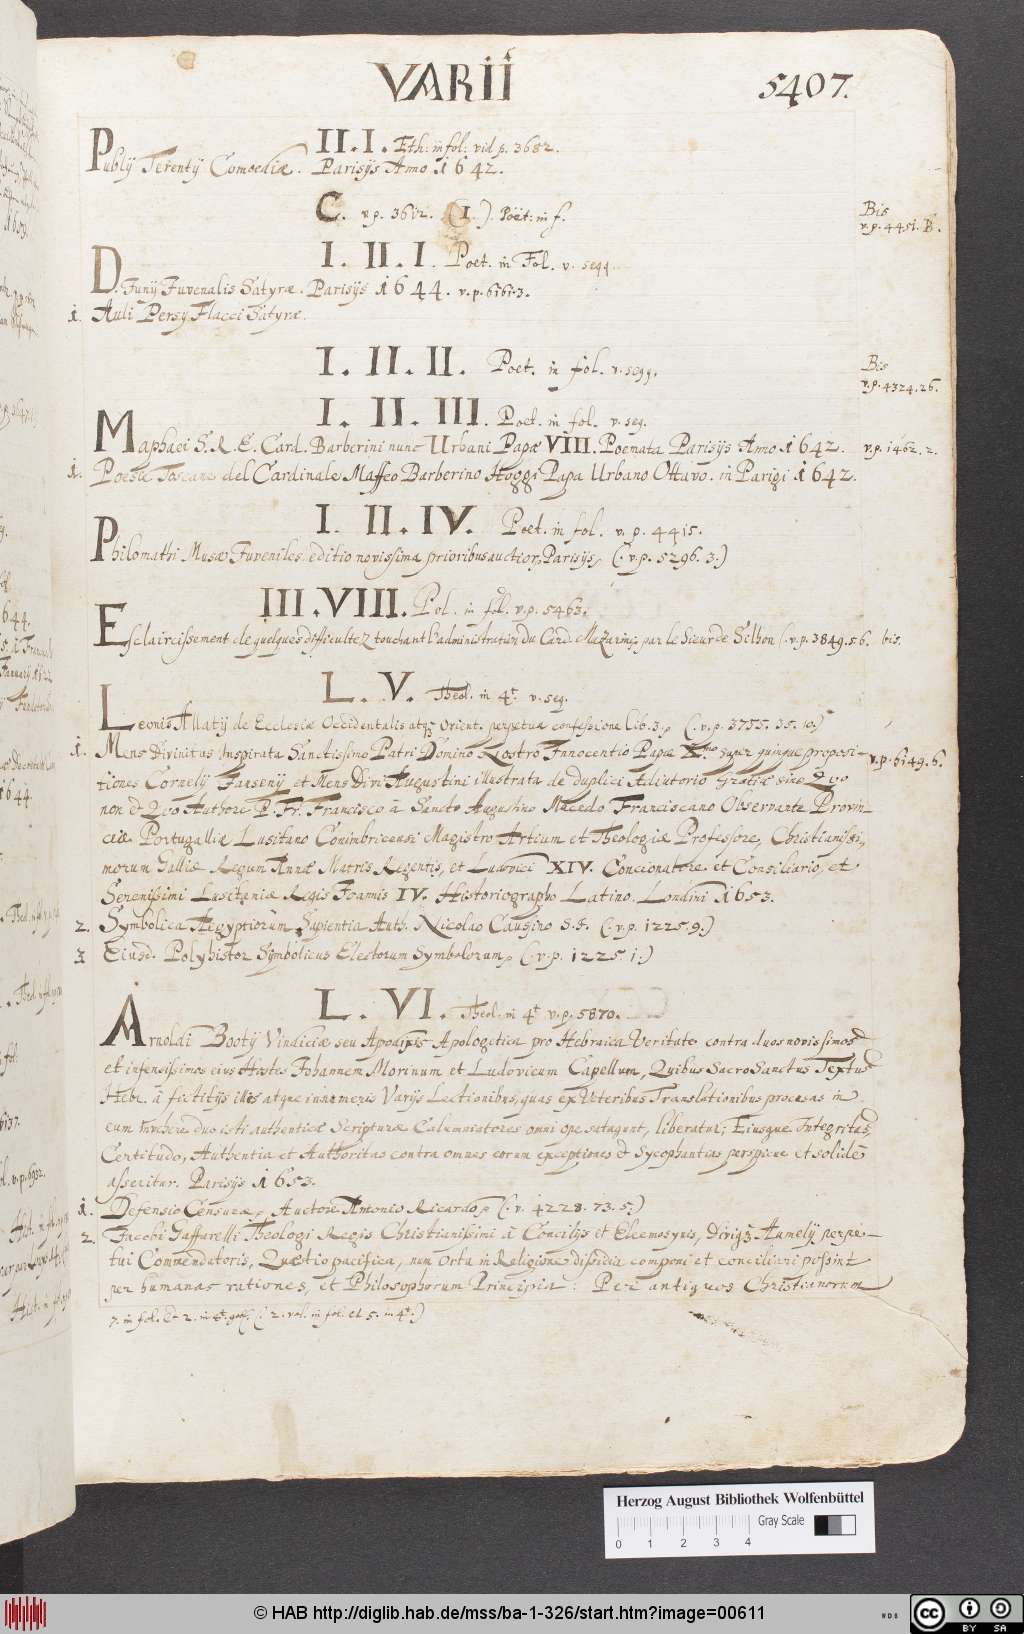 VARII
5407.
II. I. Eth: in fol: vid p. 3682.
Publij Terentij Comoediæ. Parisijs Anno 1642.
C. v p. 3612. (I.) Poët: in f.
Bis
v. p. 4451. B.
I. II. I. Poet. in Fol. v. seqq.
D. Junij Juvenalis Satyræ. Parisijs 1644. v. p. 6161.3.
1. Auli Persij Flacci Satyræ.
I. II. II. Poet. in fol. v. seqq.
Bis
v. p. 4324. 26.
I. II. III. Poet. in fol. v. seq.
Maphaei S. R. E. Card. Barberini nunc Urbani Papæ VIII. Poemata Parisijs Anno 1642. v. p. 1462. 2.
1. Poesie Toscane del Cardinale Maffeo Barberino Hoggi Papa Urbano Ottavo. in Parigi 1642.
I. II. IV. Poet. in fol. v. p. 4415.
Philomathi Musæ Juveniles editio novissima prioribus auctior, Parisijs, (: v. p. 5296. 3.)
III. VIII. Pol. in fol. v. p. 5463.
Esclaircissement de quelques difficultez touchant l'administration du Card. Mazarin, par le Sieur de Silhon (: v. p. 3849. 56. bis.
L. V. Theol. in 4t v. seq.
Leonis Allatij de Ecclesiæ Occidentalis atq3 Orient. perpetua confessione Lib. 3. (: v. p. 3755. 35. 10:)
1. Mens Divinitus Inspirata Sanctissimo Patri Domino Nostro Innocentio Papæ Xmo super quinque proposi-
v. p. 6149. 6.
tiones Cornelij Jansenij et Mens Divi Augustini illustrata de duplici Adiutorio Gratiæ sine Quo
non et Quo Authore P. Fr. Francisco à Sancto Augustino Macedo Franciscano Observante Provin-
ciæ Portugalliæ Lusitano Conimbricensi Magistro Artium et Theologiæ Professore, Christianissi-
morum Galliæ Regum Annæ Matris Regentis, et Ludovici XIV. Concionatore et Consiliario, et
Serenissimi Lusitaniæ Regis Joannis IV. Historiographo Latino. Londini 1653.
2. Symbolica Aegyptiorum Sapientia Auth. Nicolao Causino S. J. (: v. p. 1225. 9.)
3 Eiusd. Polyhistor Symbolicus Electorum Symbolorum, (: v. p. 1225. 1:)
L. VI. Theol. in 4t v. p. 5870.
Arnoldi Bootij Vindiciæ seu Apodixis Apologetica pro Hebraica Veritate contra duos novissimos
et infensissimos eius Hostes Johannem Morinum et Ludovicum Capellum, Quibus SacroSanctus Textus
Hebr. à fictitijs illis atque innumeris Varijs Lectionibus, quas ex Veteribus Translationibus procusas in
eum invehere duo isti authenticæ Scripturæ Calumniatores omni ope satagunt, liberatur; Eiusque Integritas,
Certitudo, Authentia et Authoritas contra omnes eorum exceptiones et Sycophantias perspicue et solidè
asseritur. Parisijs 1653.
1. Defensio Censuræ, Auctore Antonio Ricardo, (: v. 4228. 73. 5:)
2. Jacobi Gaffarelli Theologi Regis Christianissimi à Concilijs et Eleemosynis, Dirig3 Aunelij perpe-
tui Commendatoris, Quæstio pacifica, num Orta in Religione dissidia componi et conciliari possint
per humanas rationes, et Philosophorum Principia: Per antiquos Christianorum
7. in fol. Et 2. in 4t. (: 2. vol. in fol. et 5. in 4t.)
Herzog August Bibliothek Wolfenbüttel
Gray Scale
0 1 2 3 4
© HAB http://diglib.hab.de/mss/ba-1-326/start.htm?image=00611
WDB
cc BY SA